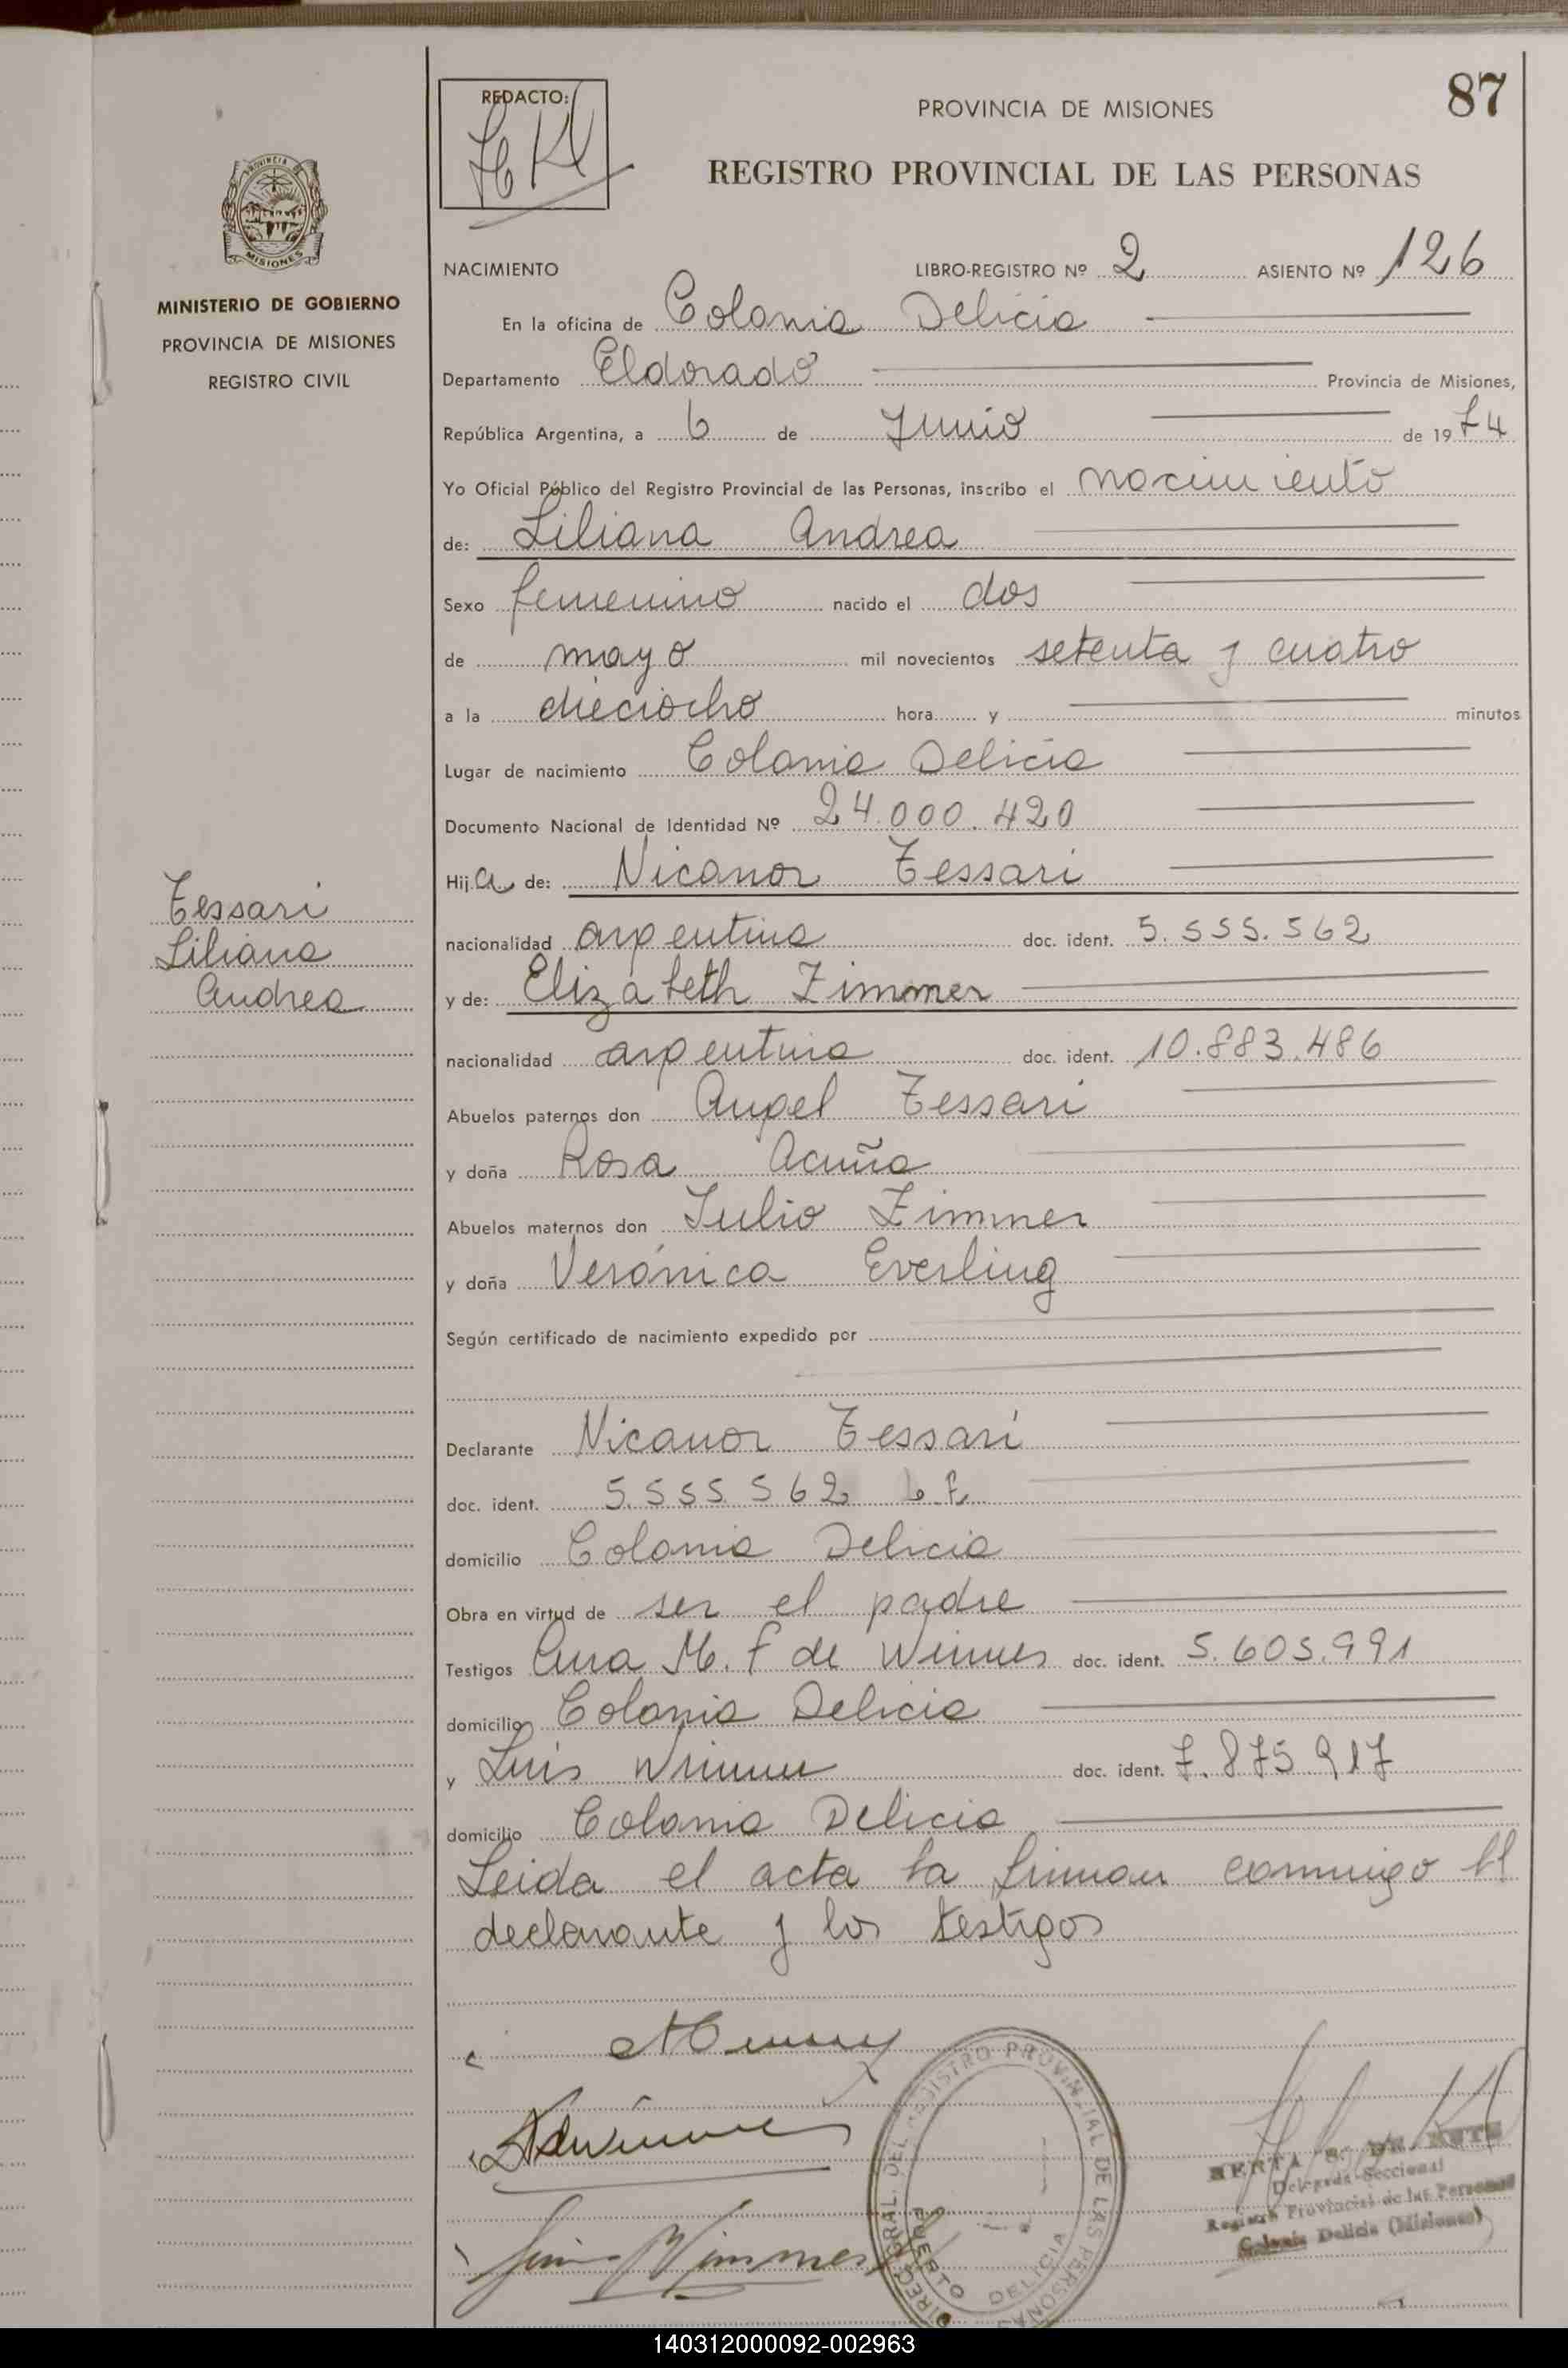 87
REDACTO:
PROVINCIA DE MISIONES
REGISTRO PROVINCIAL DE LAS PERSONAS
MISIONES
MINISTERIO DE GOBIERNO
PROVINCIA DE MISIONES
REGISTRO CIVIL
NACIMIENTO LIBRO-REGISTRO Nº 2 ASIENTO Nº 126
En la oficina de Colonia Delicia
Departamento Eldorado Provincia de Misiones,
República Argentina, a 6 de Junio de 1974
Yo Oficial Público del Registro Provincial de las Personas, inscribo el nacimiento
de: Liliana Andrea
Sexo femenino nacido el dos
de mayo mil novecientos setenta y cuatro
a la dieciocho hora y minutos
Lugar de nacimiento Colonia Delicia
Documento Nacional de Identidad Nº 24.000.420
Hija de: Nicanor Tessari
Tessari
Liliana
Andrea
nacionalidad argentina doc. ident. 5.555.562
y de: Elizabeth Zimmer
nacionalidad argentina doc. ident. 10.883.486
Abuelos paternos don Angel Tessari
y doña Rosa Acuña
Abuelos maternos don Julio Zimmer
y doña Verónica Everling
Según certificado de nacimiento expedido por
Declarante Nicanor Tessari
doc. ident. 5.555.562
domicilio Colonia Delicia
Obra en virtud de ser el padre
Testigos Ana M. F de doc. ident. 5.605.991
domicilio Colonia Delicia
y Luis doc. ident. 7.875.917
domicilio Colonia Delicia
Leida el acta la firman conmigo el
declarante y los testigos
DIREC GRAL. DEL REGISTRO PROVINCIAL DE LAS PERSONAS
PUERTO DELICIA
Delegada Seccional
Registro Provincial de las Personas
Colonia Delicia (Misiones)
140312000092-002963